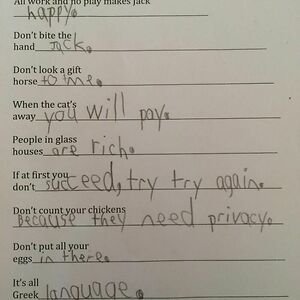 All work and no play makes Jack
happy.
Don't bite the
hand Jack.
Don't look a gift
horse to me.
When the cat's
away you will pay.
People in glass
houses are rich.
If at first you
don't succeed, try try again.
Don't count your chickens
Because they need privacy.
Don't put all your
eggs in there.
It's all
Greek language.